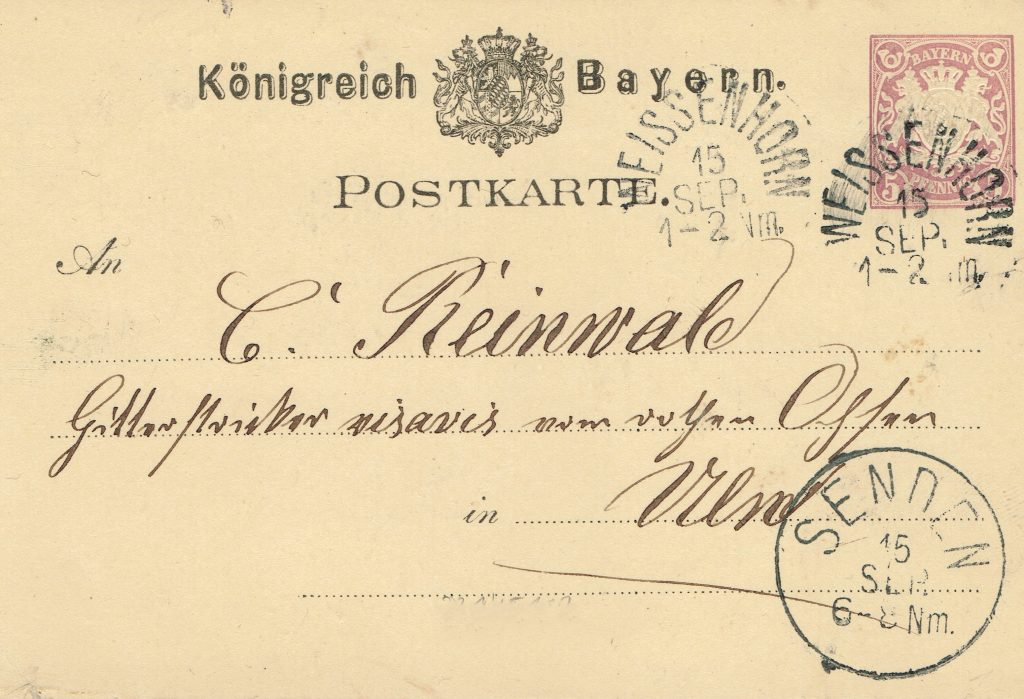 Königreich Bayern.
BAYERN
5 PFENNIG
WEISSENHORN
15
SEP.
1-2 Nm.
WEISSENHORN
15
SEP.
1-2 Nm.
POSTKARTE.
An
C. Reinwald
Gitterstricker visavis vom rothen Ochsen
in Ulm
SENDEN
15
SEP.
6-8 Nm.